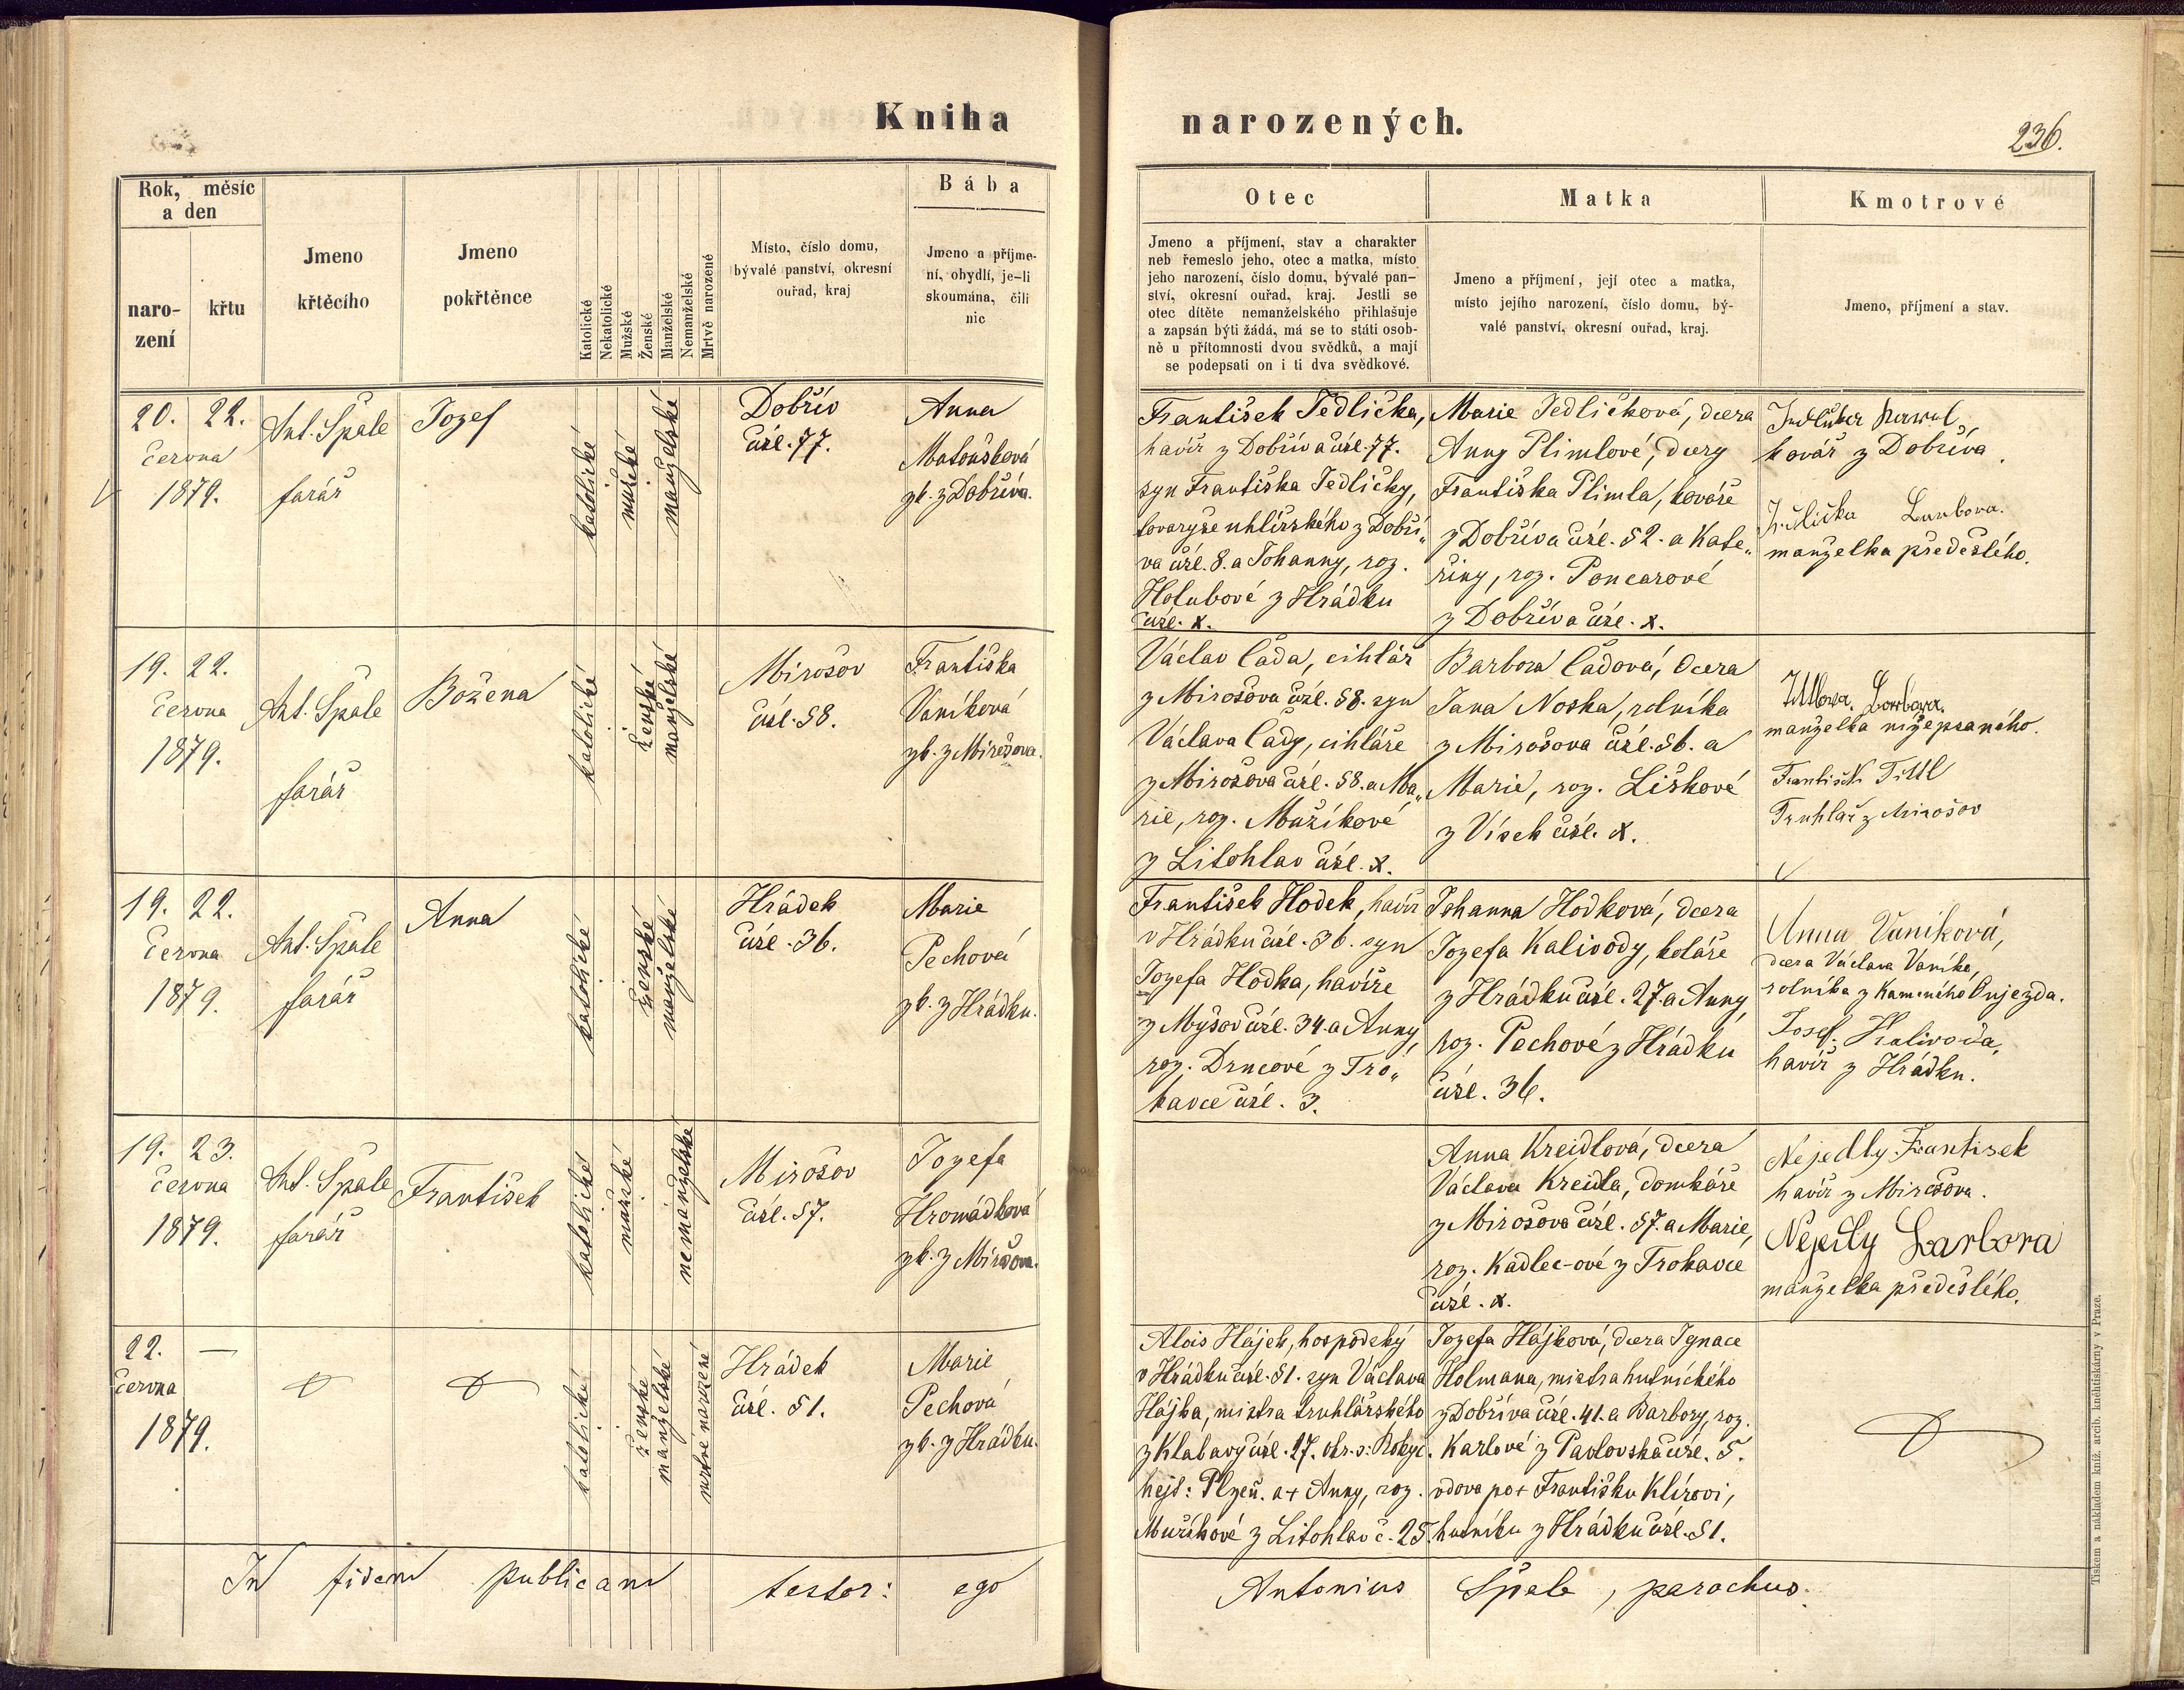 Kniha
narozených.
236.
Rok, měsíc
a den
naro-
zení
křtu
Jmeno
křtěcího
Jmeno
pokřtěnce
Katolické
Nekatolické
Mužské
Ženské
Manželské
Nemanželské
Mrtvě narozené
Místo, číslo domu,
bývalé panství, okresní
ouřad, kraj
Bába
Jmeno a příjme-
ní, obydlí, je-li
skoumána, čili
nic
Otec
Jmeno a příjmení, stav a charakter
neb řemeslo jeho, otec a matka, místo
jeho narození, číslo domu, bývalé pan-
ství, okresní ouřad, kraj. Jestli se
otec dítěte nemanželského přihlašuje
a zapsán býti žádá, má se to státi osob-
ně u přítomnosti dvou svědků, a mají
se podepsati on i ti dva svědkové.
Matka
Jmeno a příjmení, její otec a matka,
místo jejího narození, číslo domu, bý-
valé panství, okresní ouřad, kraj.
Kmotrové
Jmeno, příjmení a stav.
20. 22.
června
1879.
Ant. Špale
farář
Jozef
katolické
mužské
manželské
Dobřív
čísl. 77.
Anna
Matoušková
zk. z Dobříva.
František Jedlička,
havíř z Dobříva čísl. 77.
syn Františka Jedličky,
tovaryše uhlířského z Dobří„
va čísl. 8. a Johanny, roz.
Holubové z Hrádku
čísl. x.
Marie Jedličková, dcera
Anny Plimlové, dcery
Františka Plimla, kováře
z Dobříva čísl. 52. a Kate„
řiny, roz. Poncarové
z Dobříva čísl. x.
kovář z Dobříva.
manželka předešlého.
19. 22.
června
1879.
Ant. Špale
farář
Božena
katolické
ženské
manželské
Mirošov
čísl. 58.
Františka
Vaníková
zk. z Mirošova.
Václav Čada, cihlář
z Mirošova čísl. 58. syn
Václava Čady, cihláře
z Mirošova čísl. 58. a Ma„
rie, roz. Mužíkové
z Litohlav čísl. x.
Barbora Čadová, dcera
Jana Noska, rolníka
z Mirošova čísl. 56. a
Marie, roz. Liškové
z Vísek čísl. x.
manželka nížepsaného.
František Tittl
Truhlář z Mirošov
19. 22.
června
1879.
Ant. Špale
farář
Anna
katolické
ženské
manželské
Hrádek
čísl. 36.
Marie
Pechová
zk. z Hrádku.
František Hodek, havíř
v Hrádku čísl. 36. syn
Jozefa Hodka, havíře
z Myšov čísl. 34. a Anny,
roz. Drncové z Tro„
kavce čísl. 3.
Johanna Hodková, dcera
Jozefa Kalivody, koláře
z Hrádku čísl. 27. a Anny,
roz. Pechové z Hrádku
čísl. 36.
Anna Vaniková,
dcera Václava Vaníka,
rolníka z Kamenného Oujezda.
Josef. Kalivoda,
havíř z Hrádku.
19. 23.
června
1879.
Ant. Špale
farář
František
katolické
mužské
nemanželské
Mirošov
čísl. 57.
Jozefa
Hromádková
zk. z Mirošova.
Anna Kreidlová, dcera
Václava Kreidla, domkáře
z Mirošova čísl. 57. a Marie,
roz. Kadlec-ové z Trokavce
čísl. x.
Nejedly Frantisek
havíř z Mirošova.
Nejedly Barbora
manželka předešlého.
22. —
června
1879.
katolické
ženské
manželské
mrtvě narozené
Hrádek
čísl. 51.
Marie
Pechová
zk. z Hrádku.
Alois Hájek, hospodský
v Hrádku čísl. 51. syn Václava
Hájka, mistra truhlářského
z Klabavy čísl. 27. okr. s: Rokyc.
hejt: Plzeň. a + Anny, roz.
Mužíkové z Litohlav č. 25.
Jozefa Hájková, dcera Ignace
Holmana, mistra hutnického
z Dobříva čísl. 41. a Barbory, roz.
Karlové z Pavlovska čísl. 5.
vdova po + Františku Klírovi,
hutníku z Hrádku čísl. 51.
In fidem publicam testor: ego
Antonius Špale, parochus.
Tiskem a nákladem kníž. arcib. knihtiskárny v Praze.